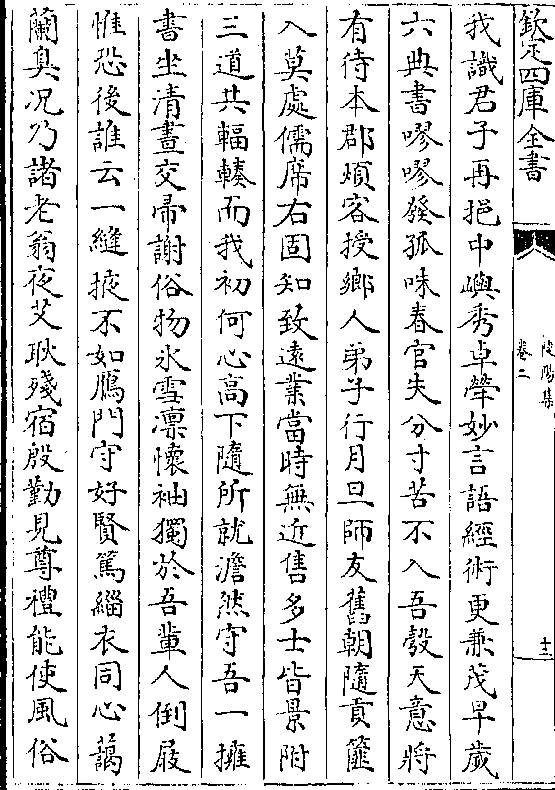 欽定四庫全書
陵陽集
卷二
十三
我識君子再挹中嶼秀卓犖妙言語經術更兼茂早歲
六典書嘐嘐發孤咮春官失分寸苦不入吾彀天意將
有待本郡煩客授鄉人弟子行月旦師友舊朝隨貢篚
入莫處儒席右固知致遠業當時無近售多士皆景附
三道共輻輳而我初何心高下隨所就澹然守吾一擁
書坐清晝交帚謝俗物氷雪凛懷袖獨於吾輩人倒屐
惟恐後誰云一縫掖不如鴈門守好賢篤緇衣同心藹
蘭臭况乃諸老翁夜艾耿殘宿殷勤見尊禮能使風俗